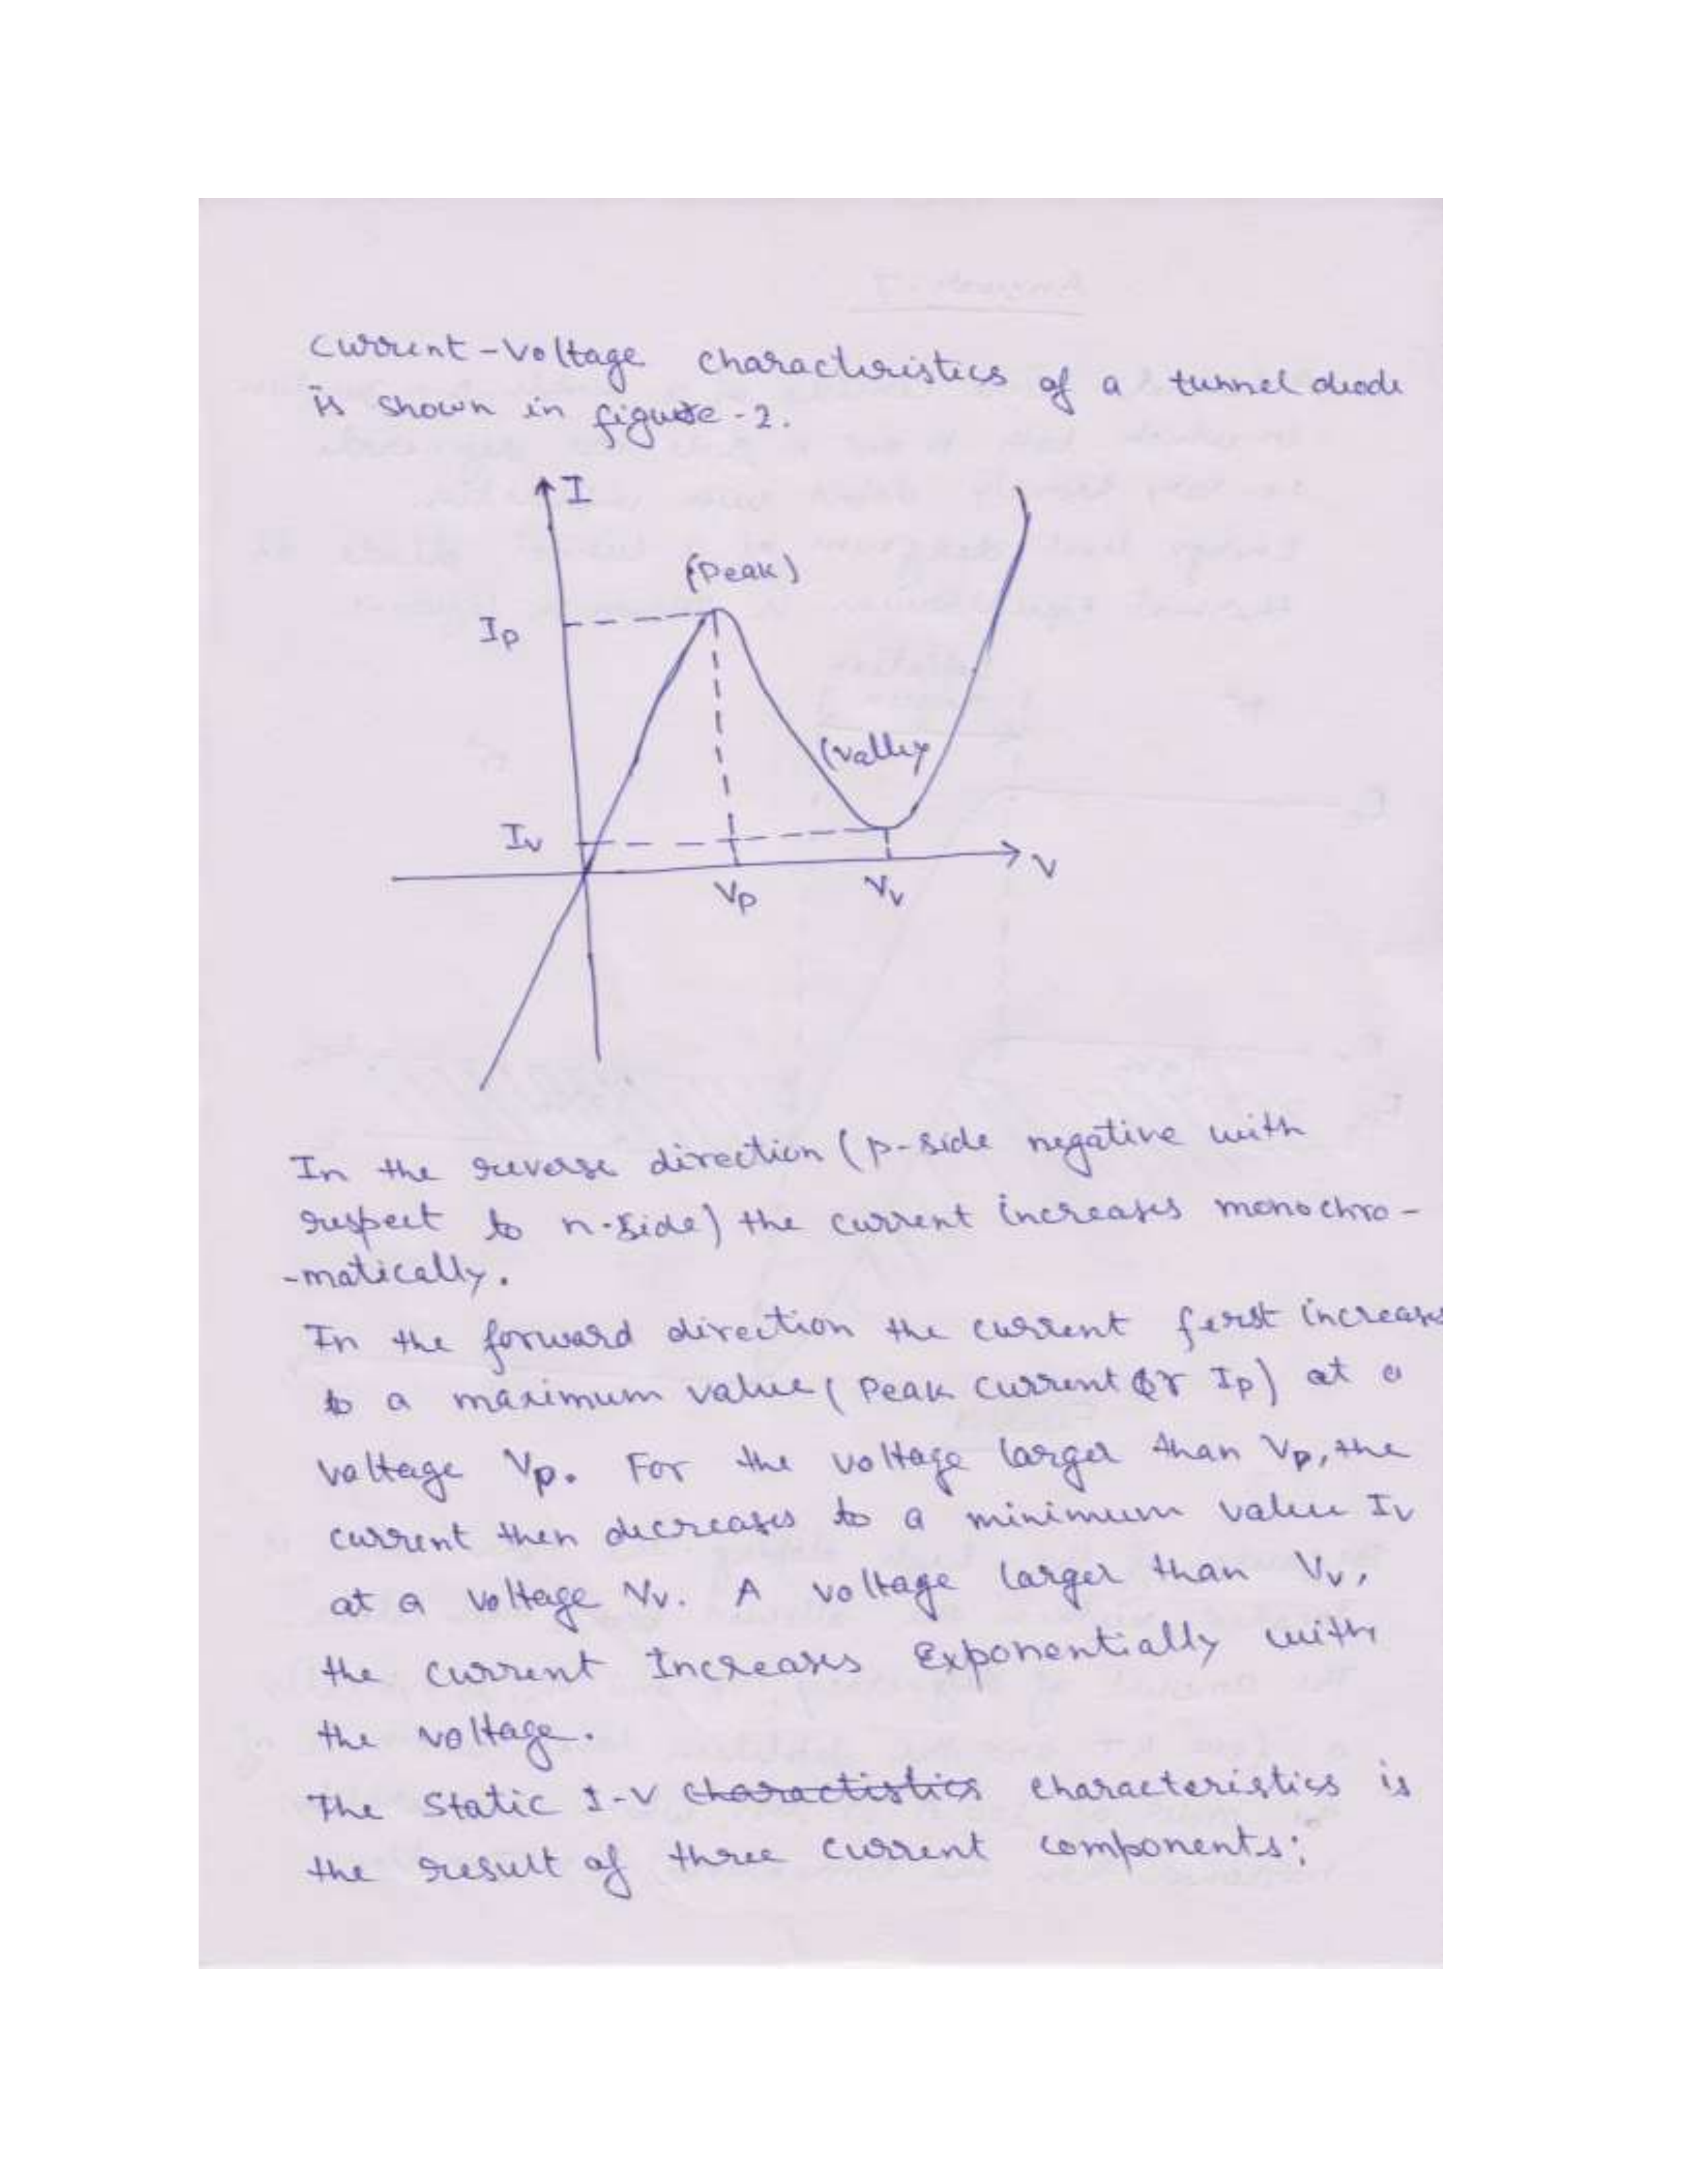 Current-Voltage characteristics of a tunnel diode
is shown in figure-2.
I
(Peak)
Ip
(valley
Iv
V
Vp
Vv
In the reverse direction (p-side negative with
respect to n-side) the current increases monochro-
-matically.
In the forward direction the current first increases
to a maximum value (Peak current or Ip) at a
voltage Vp. For the voltage larger than Vp, the
current then decreases to a minimum value Iv
at a voltage Vv. A voltage larger than Vv,
the current Increases Exponentially with
the voltage.
The Static I-V charactistics characteristics is
the result of three current components: